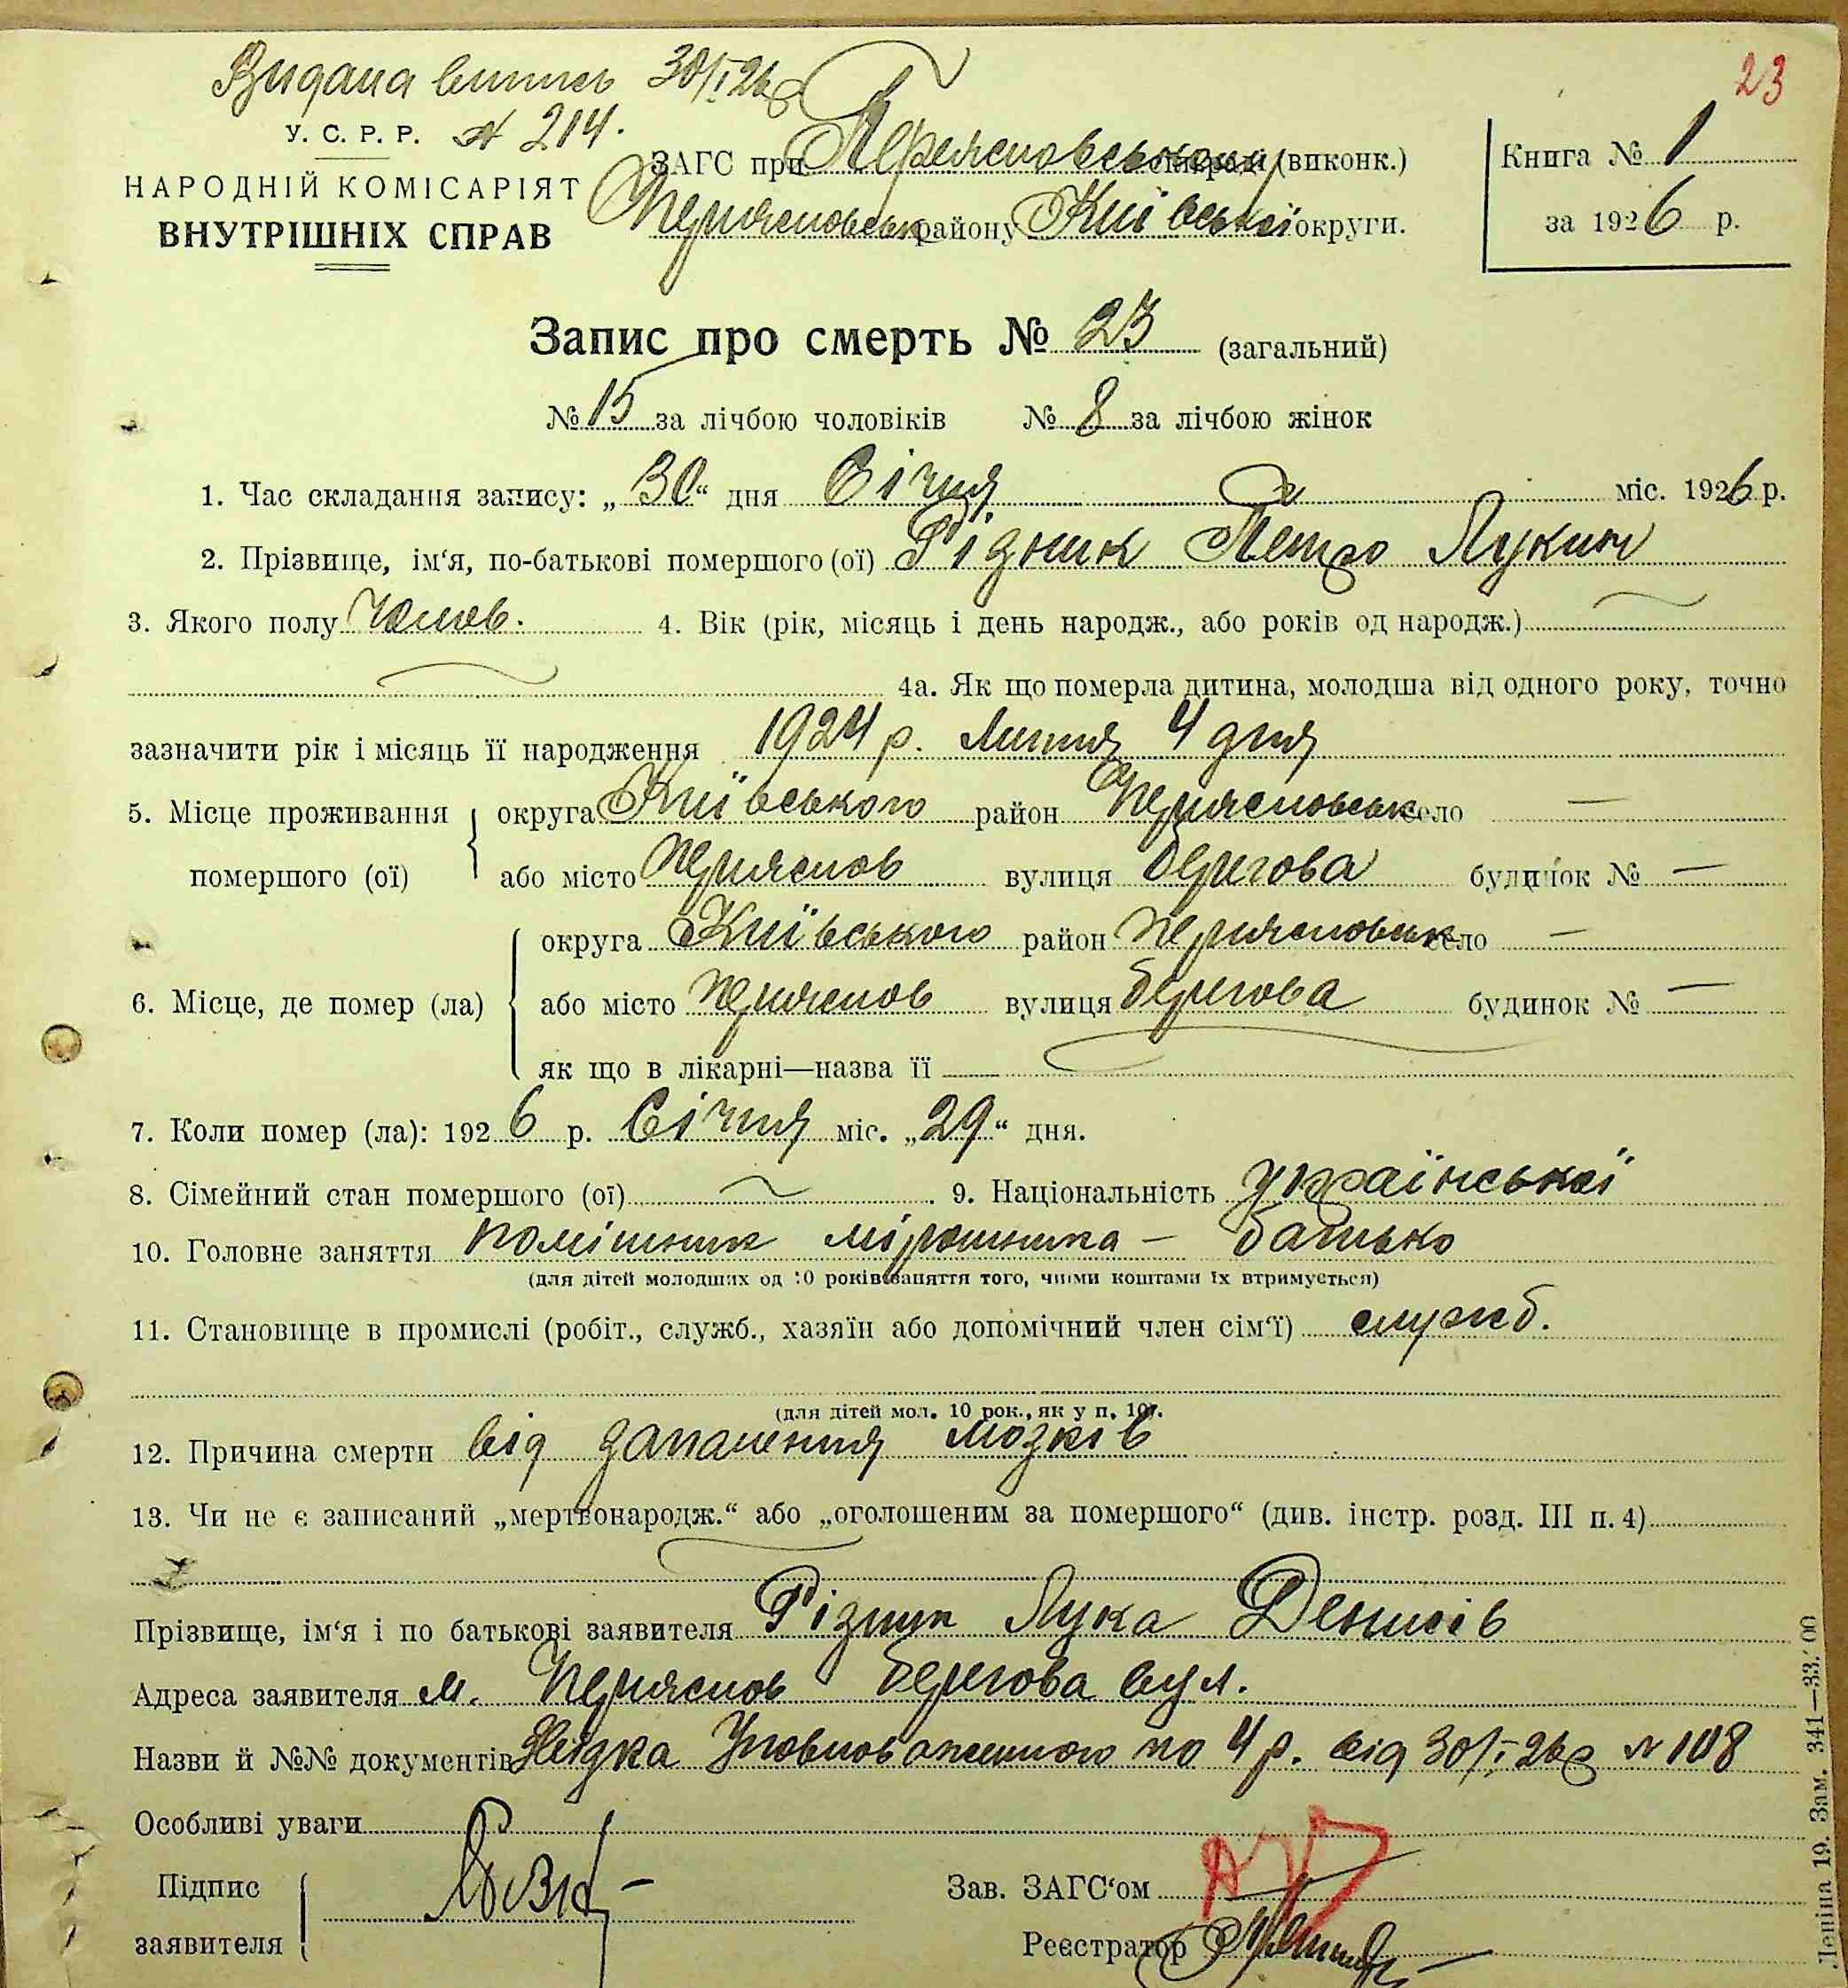 23
Видана випись 30/I 26 р
У. С. Р. Р. № 214.
НАРОДНІЙ КОМІСАРІЯТ
ВНУТРІШНІХ СПРАВ
ЗАГС при Переясловською (виконк.)
Переясловськ району Київської округи.
Книга № 1
за 1926 р.
Запис про смерть № 23 (загальний)
№ 15 за лічбою чоловіків № 8 за лічбою жінок
1. Час складання запису: „30“ дня Січня міс. 1926 р.
2. Прізвище, ім‘я, по-батькові помершого (ої) Різник Петро Лукич
3. Якого полу Чолов. 4. Вік (рік, місяць і день народж., або років од народж.)
4а. Як що померла дитина, молодша від одного року, точно
зазначити рік і місяць її народження 1924 р. Липня 4 дня
5. Місце проживання помершого (ої) округа Київського район Переясловськ село —
або місто Переяслов вулиця Берегова будинок № —
6. Місце, де помер (ла) округа Київського район Переясловськ село —
або місто Переяслов вулиця берегова будинок № —
як що в лікарні—назва її
7. Коли помер (ла): 1926 р. Січня міс. „29“ дня.
8. Сімейний стан помершого (ої) 9. Національність української
10. Головне заняття помішник мірошника — батько
(для дітей молодших од 10 років заняття того, чиїми коштами їх втримується)
11. Становище в промислі (робіт., служб., хазяїн або допомічний член сім‘ї) служб.
(для дітей мол. 10 рок., як у п. 10).
12. Причина смерти від запалення мозків
13. Чи не є записаний „мертвонародж.“ або „оголошеним за помершого“ (див. інстр. розд. III п. 4)
Прізвище, ім‘я і по батькові заявителя Різник Лука Денисів
Адреса заявителя м. Переяслов Берегова вул.
Назви й №№ документів Уповноваженного по 4 р. від 30/I 26 р № 108
Особливі уваги
Підпис заявителя
Зав. ЗАГС‘ом
Реєстратор
Леніна 19. Зам. 341—33.‘00